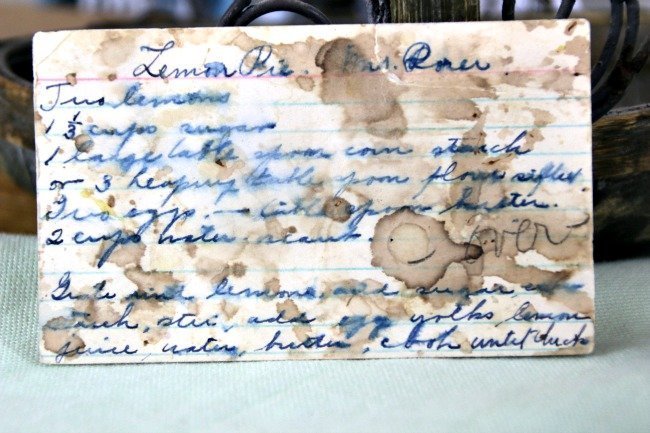 Lemon Pie. Mrs. Rorer
Two lemons
1 1/3 cups sugar
1 large table spoon corn starch
or 3 heaping table spoon flour sifted
Two eggs. — table spoon butter.
2 cups water scant.
over
Grate rind lemons, add sugar,
starch, stir, add egg yolks lemon
juice, water, butter, cook until thick